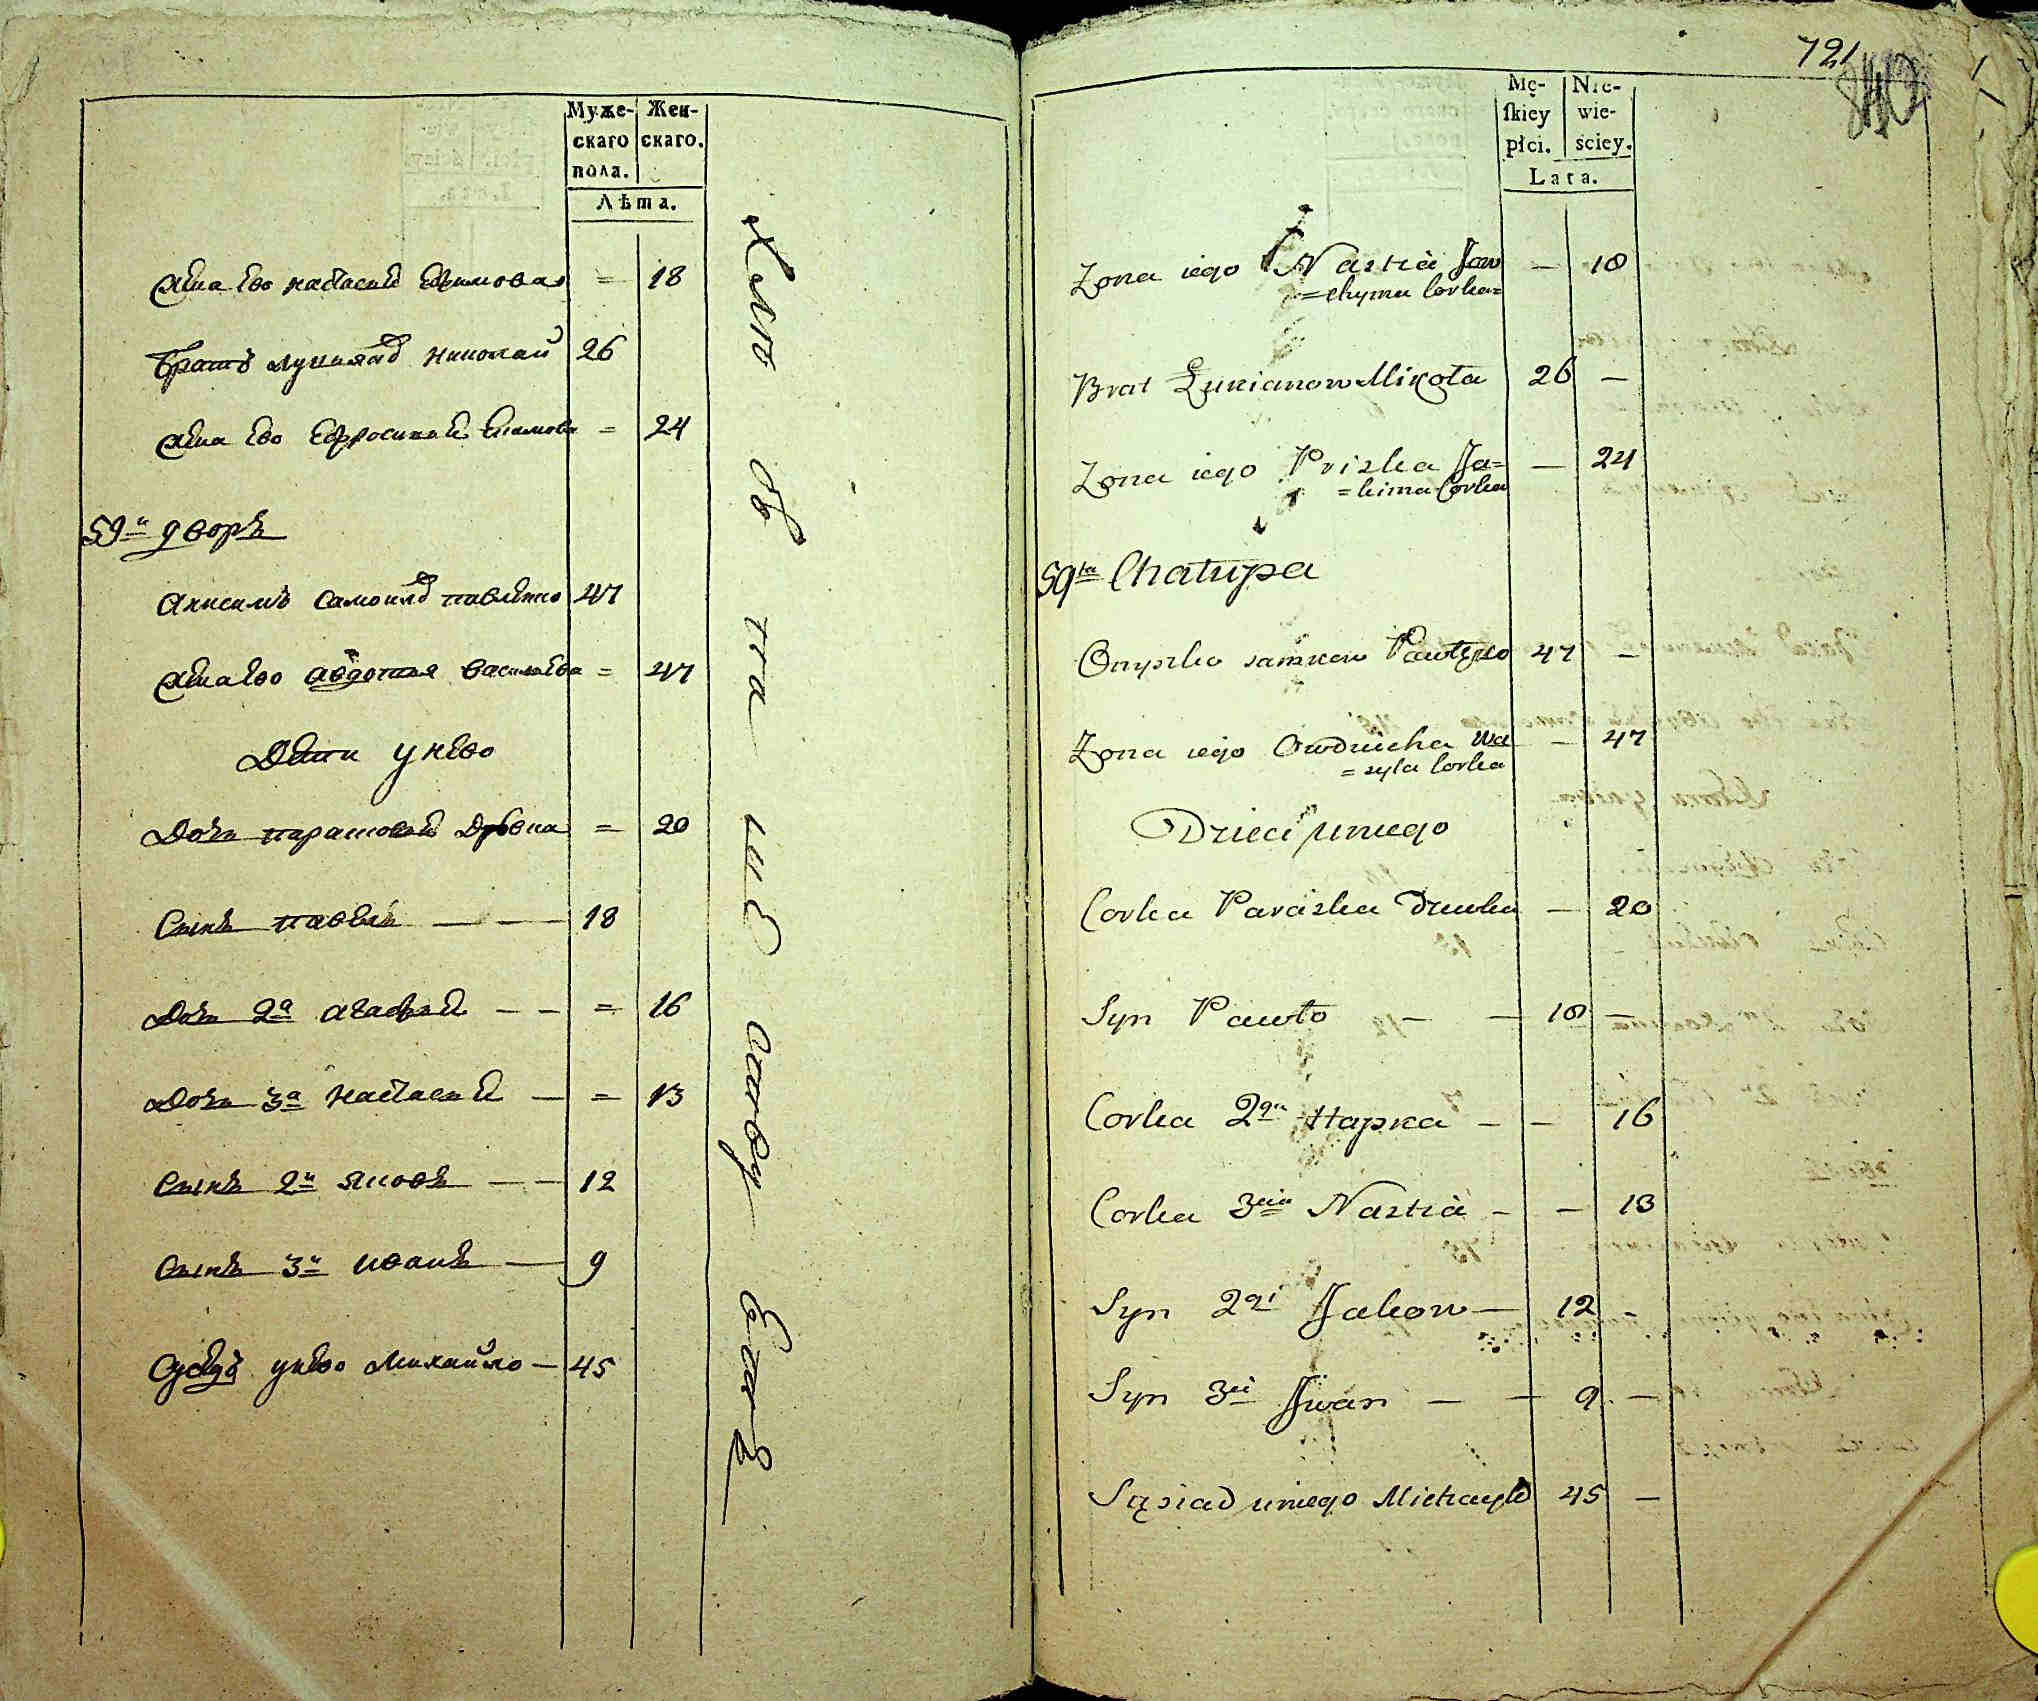 Муже-
скаго
пола.
Жен-
скаго.
Лѣта.
Жена Ево настасия Ефимова = 18
Братъ лукиянов николай 26
Жена Ево Ефросиния Екимова = 24
59й дворъ
Анисимъ самоилов павленко 47
Жена Ево авдотия василева = 47
Дети у нево
Дочь парасковия Девка = 20
Сынъ павелъ — — 18
Дочь 2я агафия — — = 16
Дочь 3я настасия — = 13
Сынъ 2й яковъ — — 12
Сынъ 3й иванъ — 9
Суседъ у нево михайло — 45
721
Mę-
ſkiey
płci.
Nie-
wie-
sciey.
Lata.
Zona iego Nastia Jow — 18
= chyma Corka =
Brat Łukianow Mikoła 26 —
Zona iego Priska Ja= — 24
= kima Corka
59ta Chałupa
Onyszko samkow Pawłęko 47 —
Zona iego Owduicha Wa — 47
= syla Corka
Dzieci uniego
Corka Paraska Dziewka — 20
Syn Pawło — — 18 —
Corka 2ga Hapka — — 16
Corka 3cia Nastia — — 13
Syn 2gi Jakow — 12 -
Syn 3ci Jwan — — 9 —
Sąsiad uniego Michayło 45 —